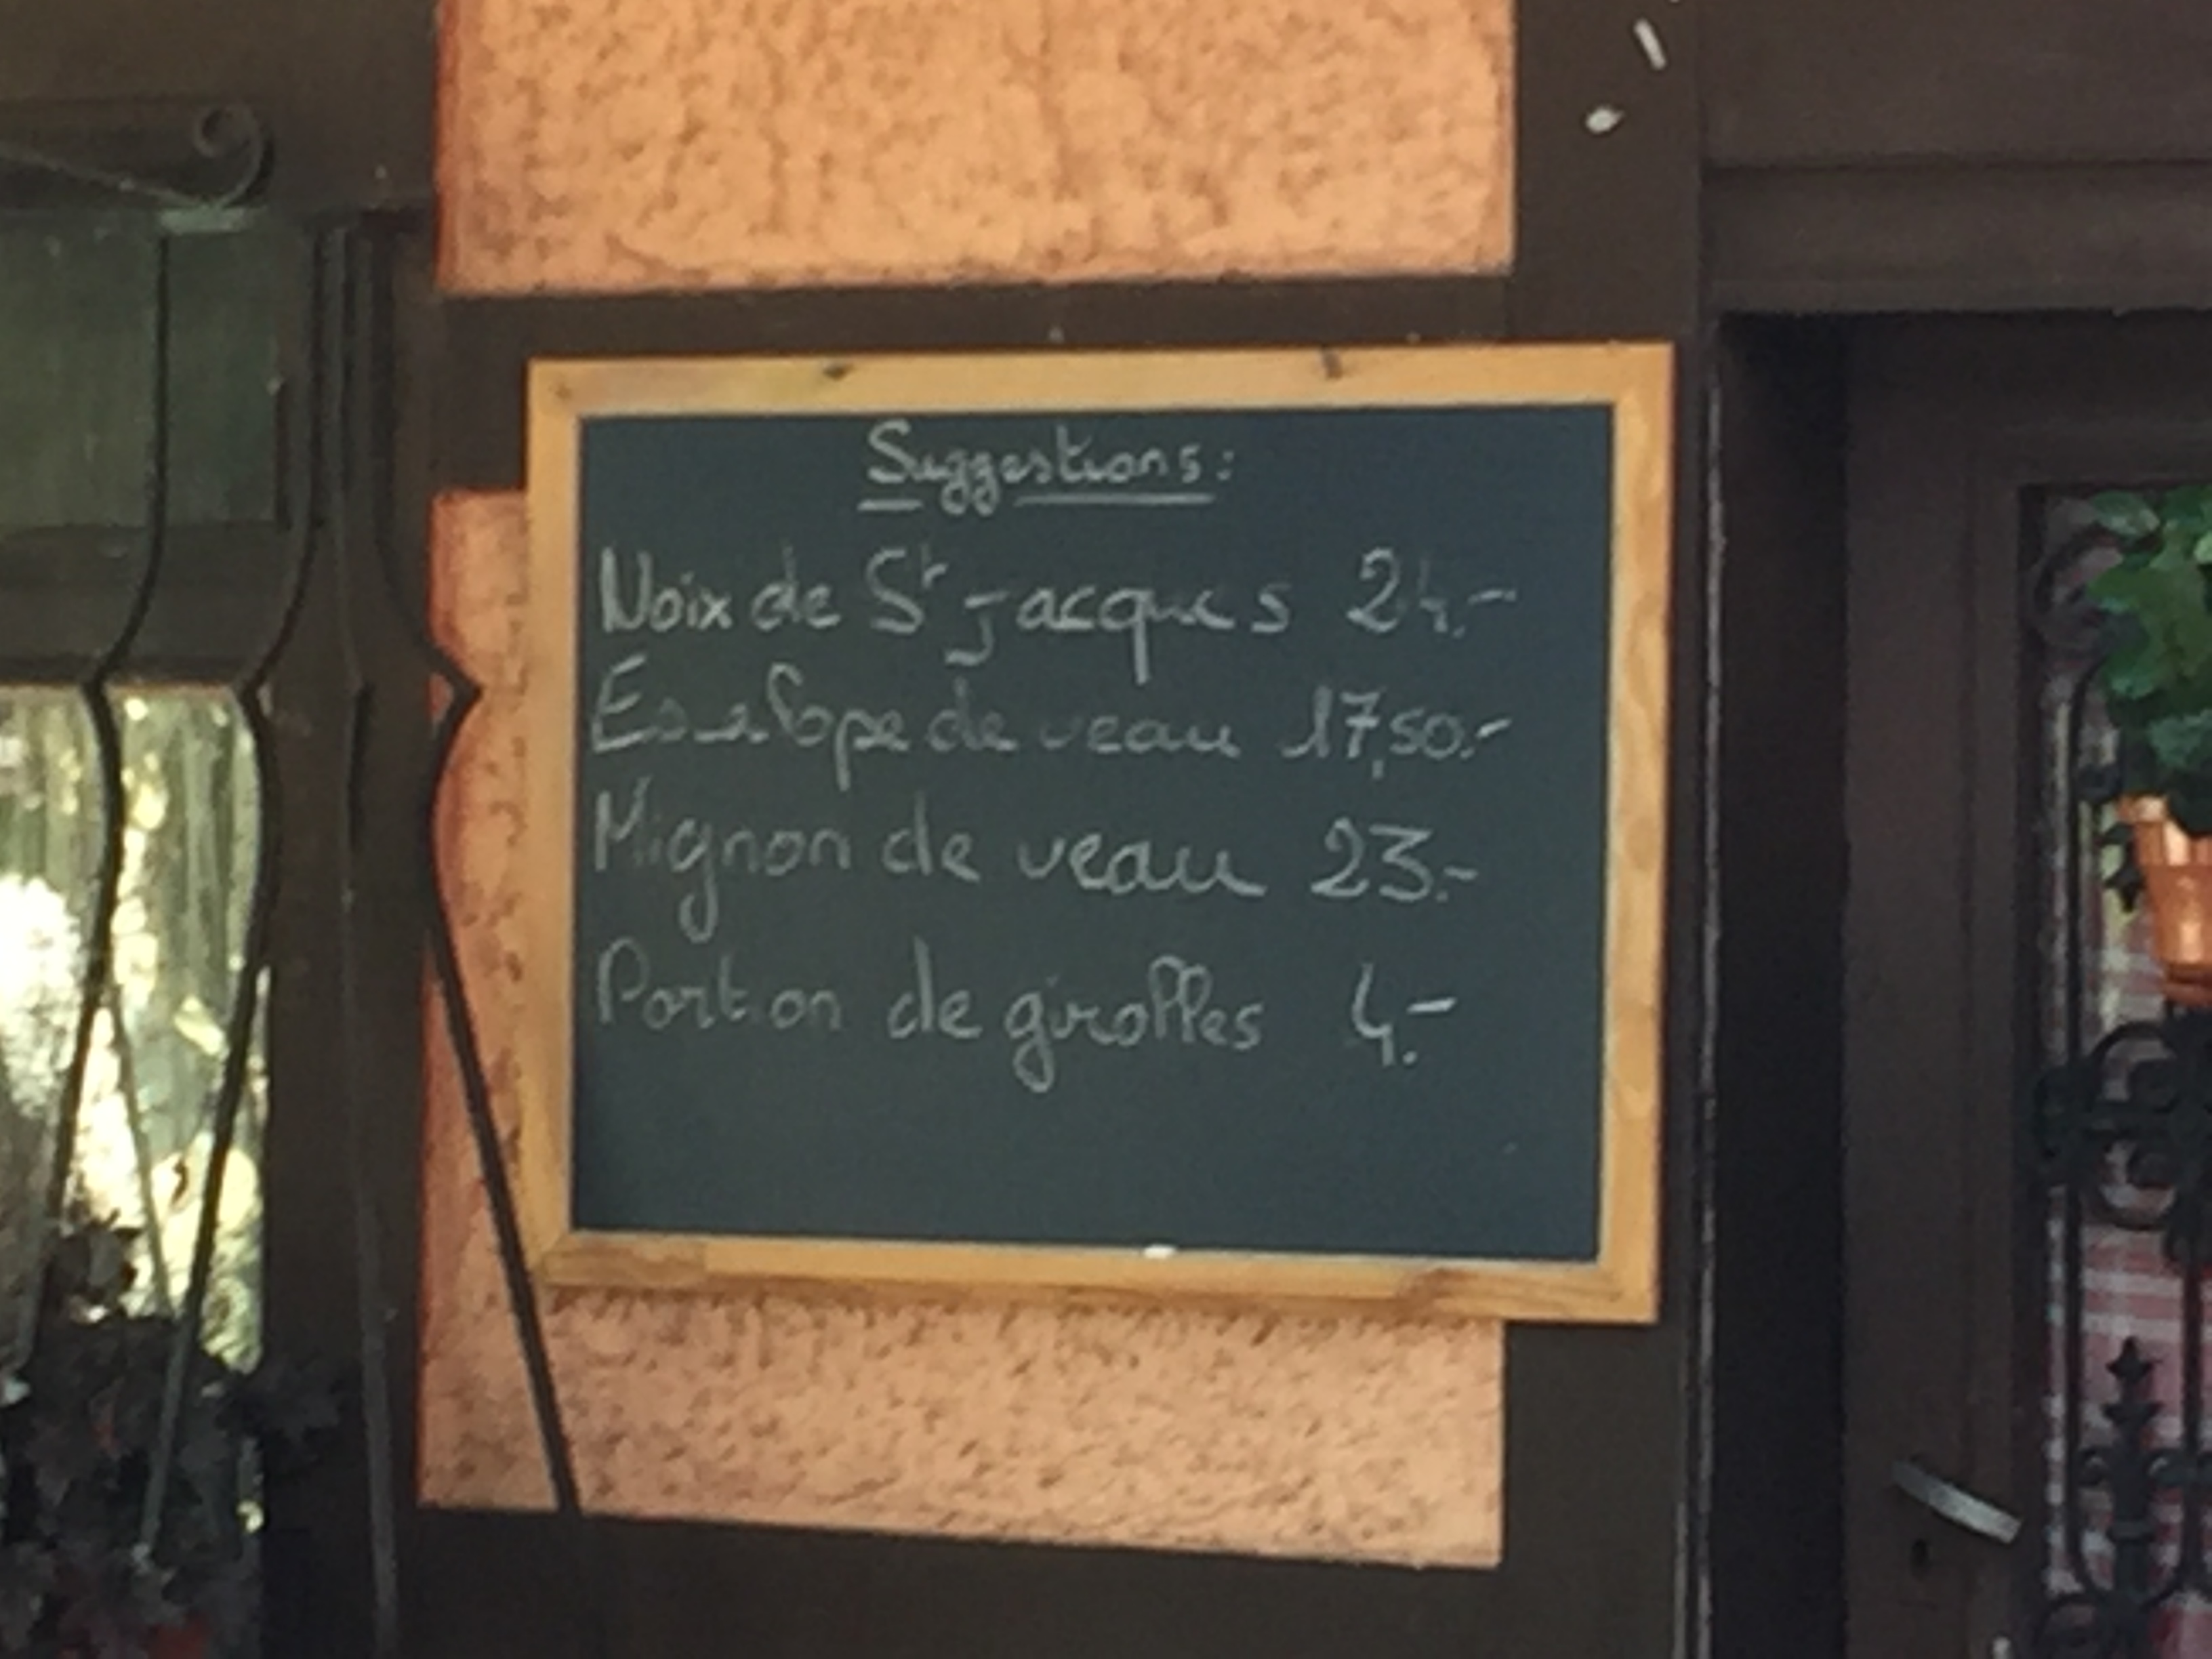 Suggestions:
Noix de St Jacques 24.-
Escalope de veau 17,50.-
Mignon de veau 23.-
Portion de girolles 4.-